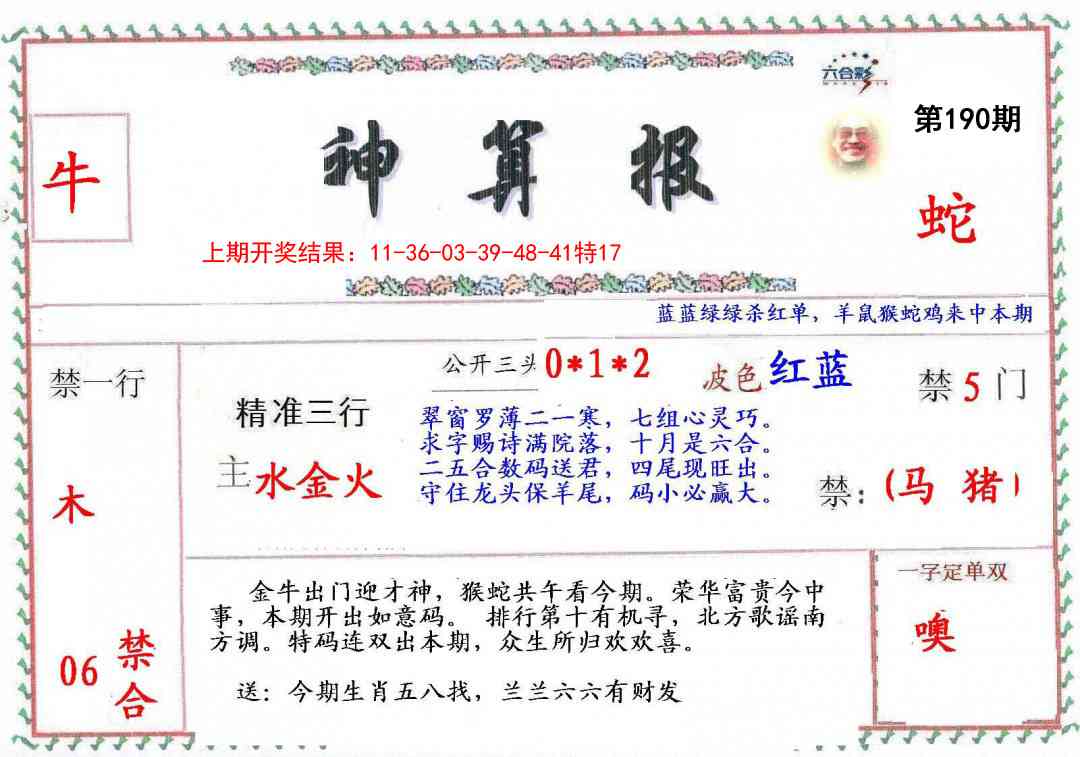 六合彩
第190期
牛
神算报
蛇
上期开奖结果：11-36-03-39-48-41特17
蓝蓝绿绿杀红单，羊鼠猴蛇鸡来中本期
禁一行
公开三头 0*1*2
波色 红蓝
禁 5 门
精准三行
主 水金火
翠窗罗薄二一寒，七组心灵巧。
求字赐诗满院落，十月是六合。
二五合数码送君，四尾现旺出。
守住龙头保羊尾，码小必赢大。
禁：(马 猪)
木
金牛出门迎才神，猴蛇共午看今期。荣华富贵今中
事，本期开出如意码。 排行第十有机寻，北方歌谣南
方调。特码连双出本期，众生所归欢欢喜。
送：今期生肖五八找，兰兰六六有财发
一字定单双
噢
06 禁合